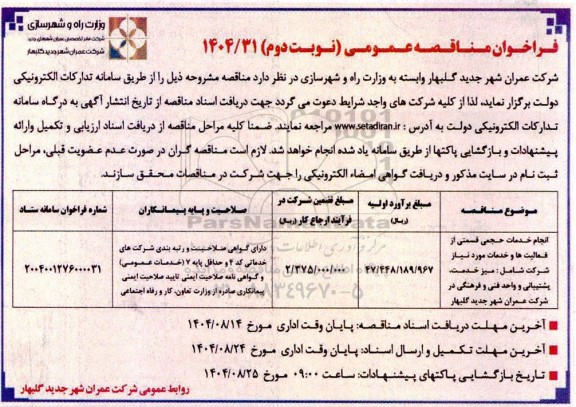 وزارت راه و شهرسازی
شرکت عمران شهر جدید گلبهار
فراخوان مناقصه عمومی (نوبت دوم) ۱۴۰۴/۳۱
شرکت عمران شهر جدید گلبهار وابسته به وزارت راه و شهرسازی در نظر دارد مناقصه مشروحه ذیل را از طریق سامانه تدارکات الکترونیکی
دولت برگزار نماید، لذا از کلیه شرکت های واجد شرایط دعوت می گردد جهت دریافت اسناد مناقصه از تاریخ انتشار آگهی به درگاه سامانه
تدارکات الکترونیکی دولت به آدرس : www.setadiran.ir مراجعه نمایند. ضمنا کلیه مراحل مناقصه از دریافت اسناد ارزیابی و تکمیل وارائه
پیشنهادات و بازگشایی پاکتها از طریق سامانه یاد شده انجام خواهد شد. لازم است مناقصه گران در صورت عدم عضویت قبلی، مراحل
ثبت نام در سایت مذکور و دریافت گواهی امضاء الکترونیکی را جهت شرکت در مناقصات محقق سازند.
موضوع مناقصه
مبلغ برآورد اولیه (ریال)
مبلغ تضمین شرکت در فرآیند ارجاع کار (ریال)
صلاحیت و پایه پیمانکاران
شماره فراخوان سامانه ستاد
انجام خدمات حجمی قسمتی از
فعالیت ها و خدمات مورد نیاز
شرکت شامل : میز خدمت،
پشتیبانی و واحد فنی و فرهنگی در
شرکت عمران شهر جدید گلبهار
۴۷/۴۴۸/۱۸۹/۹۶۷
۲/۳۷۵/۰۰۰/۰۰۰
دارای گواهی صلاحیت و رتبه بندی شرکت های
خدماتی کد ۴ و حداقل پایه ۷ (خدمات عمومی)
و گواهی نامه صلاحیت ایمنی تایید صلاحیت ایمنی
پیمانکاری صادره از وزارت تعاون، کار و رفاه اجتماعی
۲۰۰۴۰۰۱۲۷۶۰۰۰۰۳۱
آخرین مهلت دریافت اسناد مناقصه: پایان وقت اداری مورخ ۱۴۰۴/۰۸/۱۴
آخرین مهلت تکمیل و ارسال اسناد: پایان وقت اداری مورخ ۱۴۰۴/۰۸/۲۴
تاریخ بازگشایی پاکتهای پیشنهادات: ساعت ۰۹:۰۰ مورخ ۱۴۰۴/۰۸/۲۵
روابط عمومی شرکت عمران شهر جدید گلبهار